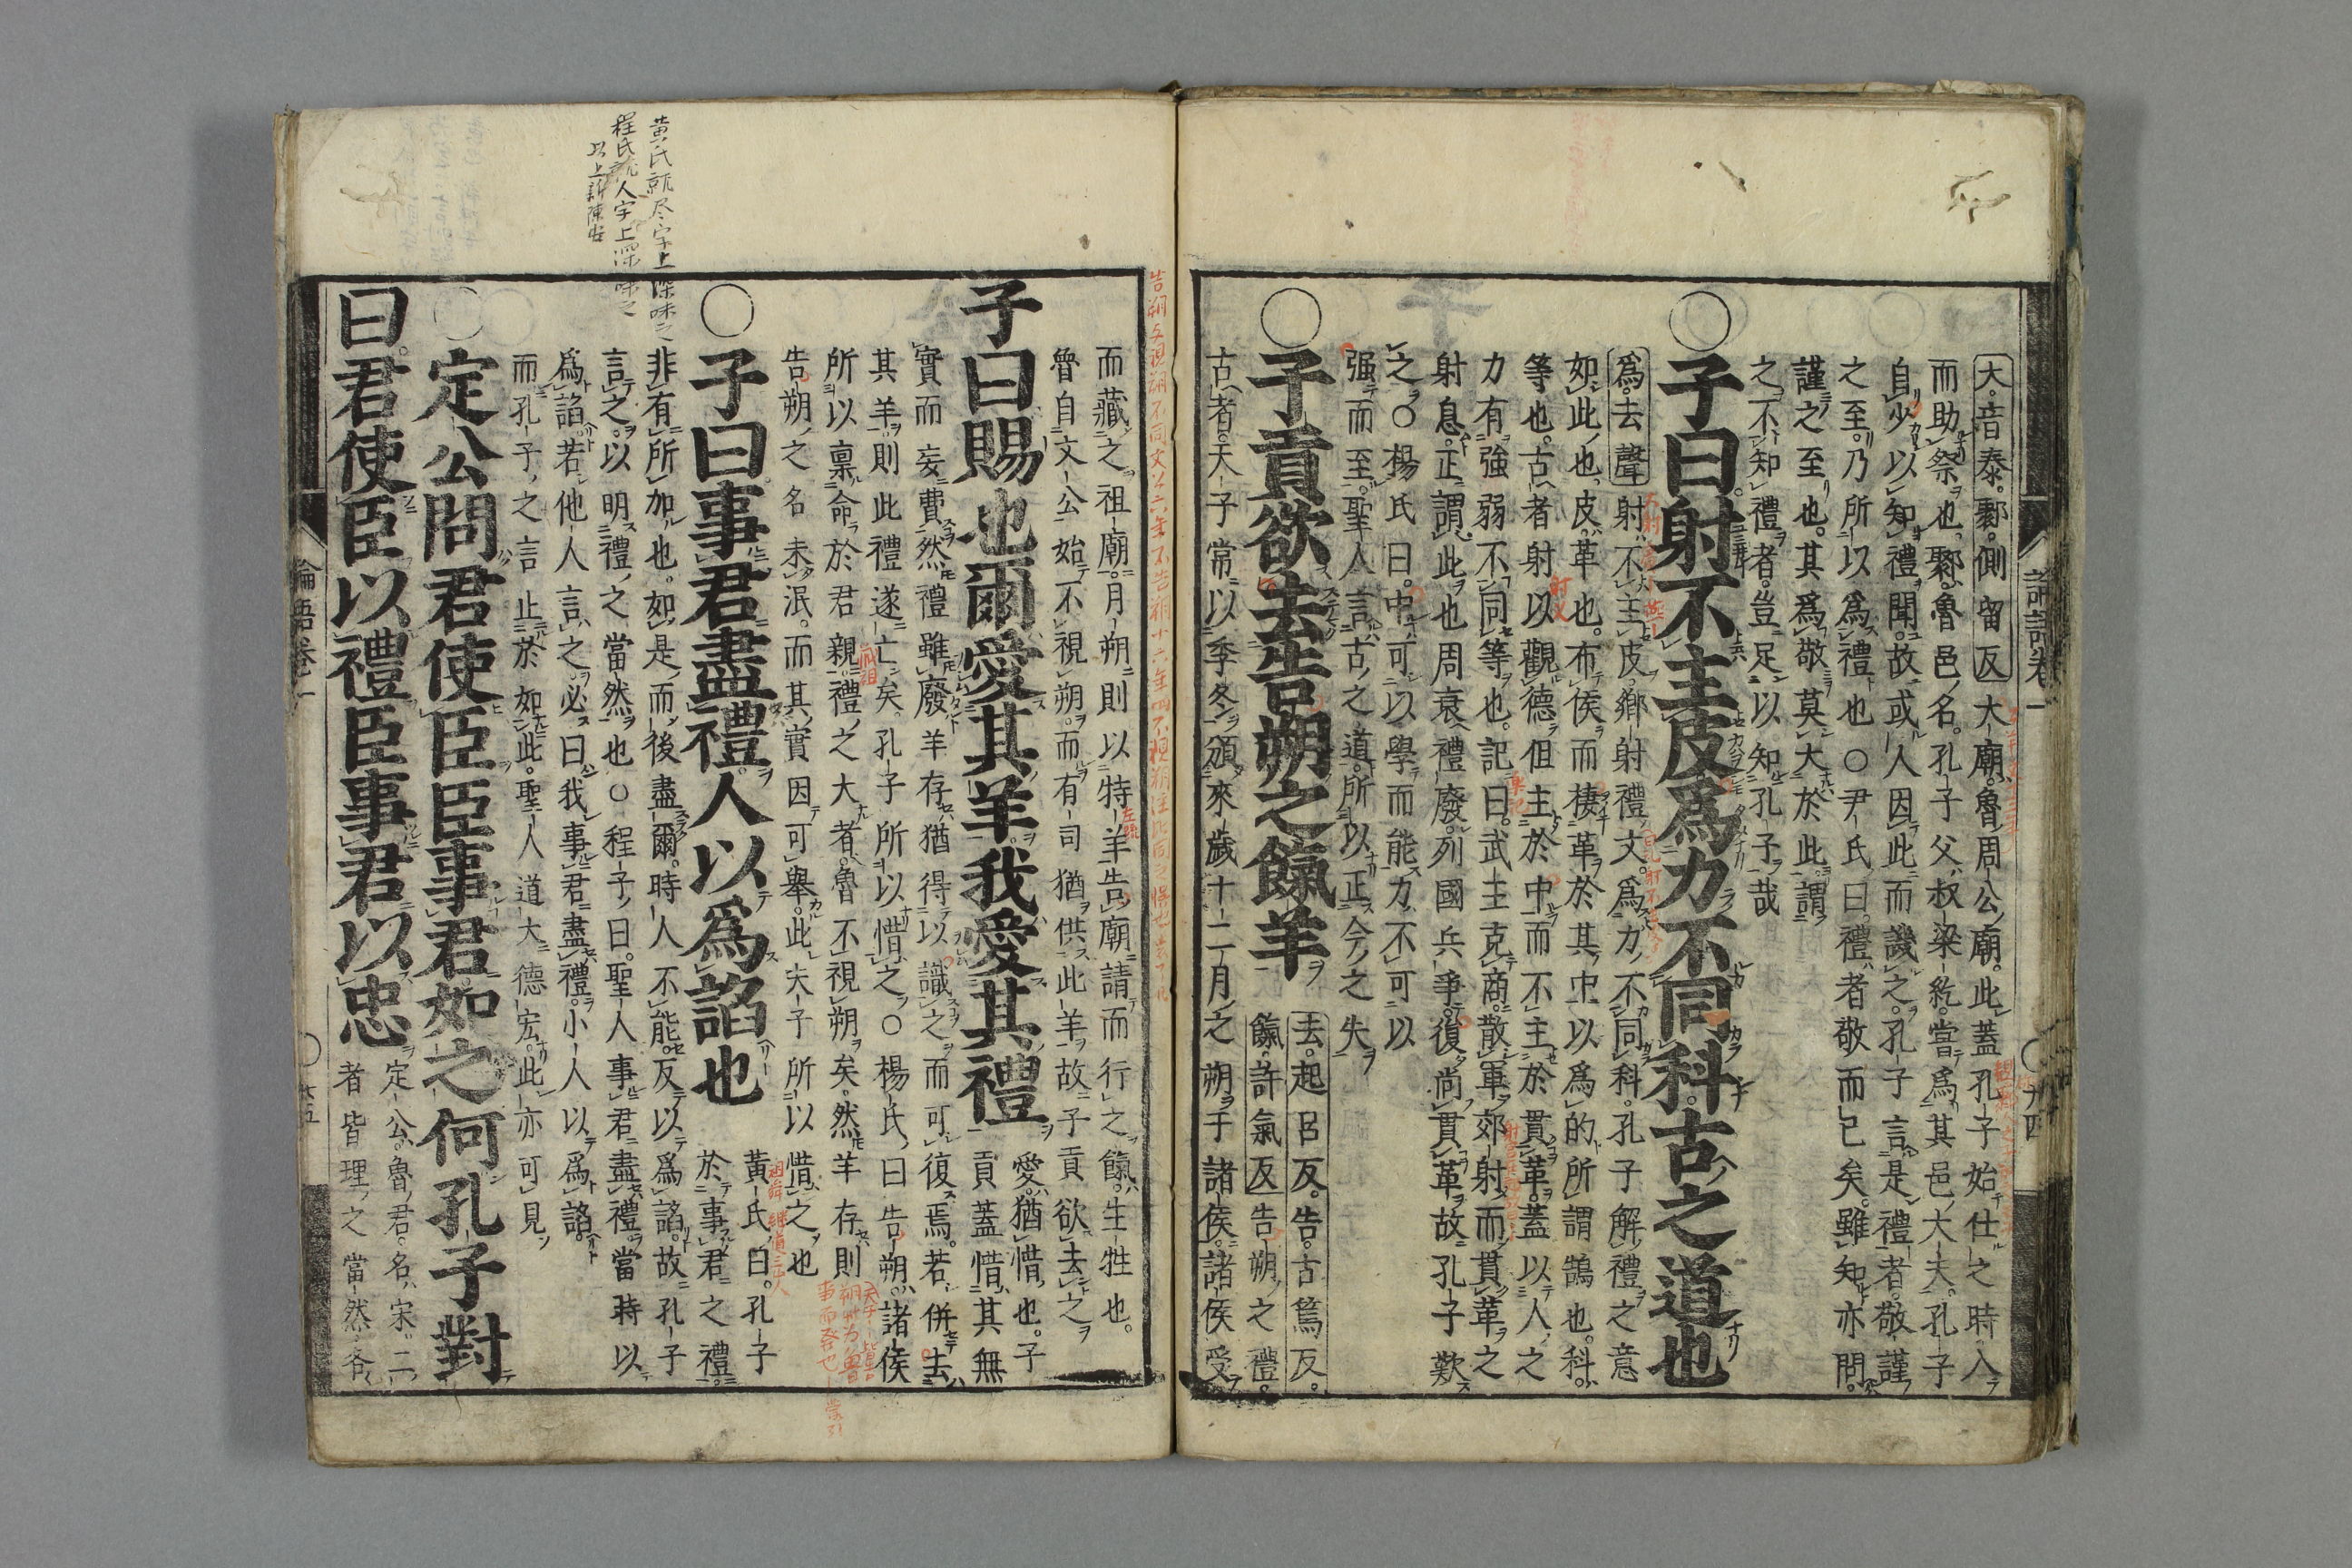 大音泰鄹側留反大廟魯周公廟此蓋孔子始仕之時入
而助祭也鄹魯邑名孔子父叔梁紇嘗爲其邑大夫孔子
自少以知禮聞故或人因此而譏之孔子言是禮者敬謹
之至乃所以爲禮也○尹氏曰禮者敬而已矣雖知亦問
謹之至也其爲敬莫大於此謂
之不知禮者豈足以知孔子哉
○子曰射不主皮爲力不同科古之道也
爲去聲射不主皮鄉射禮文爲力不同科孔子解禮之意
如此也皮革也布侯而棲革於其中以爲的所謂鵠也科
等也古者射以觀德但主於中而不主於貫革蓋以人之
力有强弱不同等也記曰武王克商散軍郊射而貫革之
射息正謂此也周衰禮廢列國兵爭復尚貫革故孔子歎
之○楊氏曰中可以學而能力不可以
强而至聖人言古之道所以正今之失
○子貢欲去告朔之餼羊
去起呂反告古篤反
餼許氣反告朔之禮
古者天子常以季冬頒來歲十二月之朔于諸侯諸侯受
而藏之祖廟月朔則以特羊告廟請而行之餼生牲也
魯自文公始不視朔而有司猶供此羊故子貢欲去之
子曰賜也爾愛其羊我愛其禮
愛猶惜也子
貢蓋惜其無
實而妄費然禮雖廢羊存猶得以識之而可復焉若併去
其羊則此禮遂亡矣孔子所以惜之○楊氏曰告朔諸侯
所以稟命於君親禮之大者魯不視朔矣然羊存則
告朔之名未泯而其實因可舉此夫子所以惜之也
○子曰事君盡禮人以爲諂也
黃氏曰孔子
於事君之禮
非有所加也如是而後盡爾時人不能反以爲諂故孔子
言之以明禮之當然也○程子曰聖人事君盡禮當時以
爲諂若他人言之必曰我事君盡禮小人以爲諂
而孔子之言止於如此聖人道大德宏此亦可見
○定公問君使臣臣事君如之何孔子對
曰君使臣以禮臣事君以忠
定公魯君名宋二
者皆理之當然各
論語卷一
論語卷一
黄氏就尽字上深味之
程氏就人字上深味之
以上新陳安